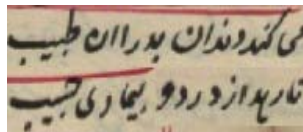 می کند دندان بد را آن طبیب
تا رهد از درد و بیماری حبیب